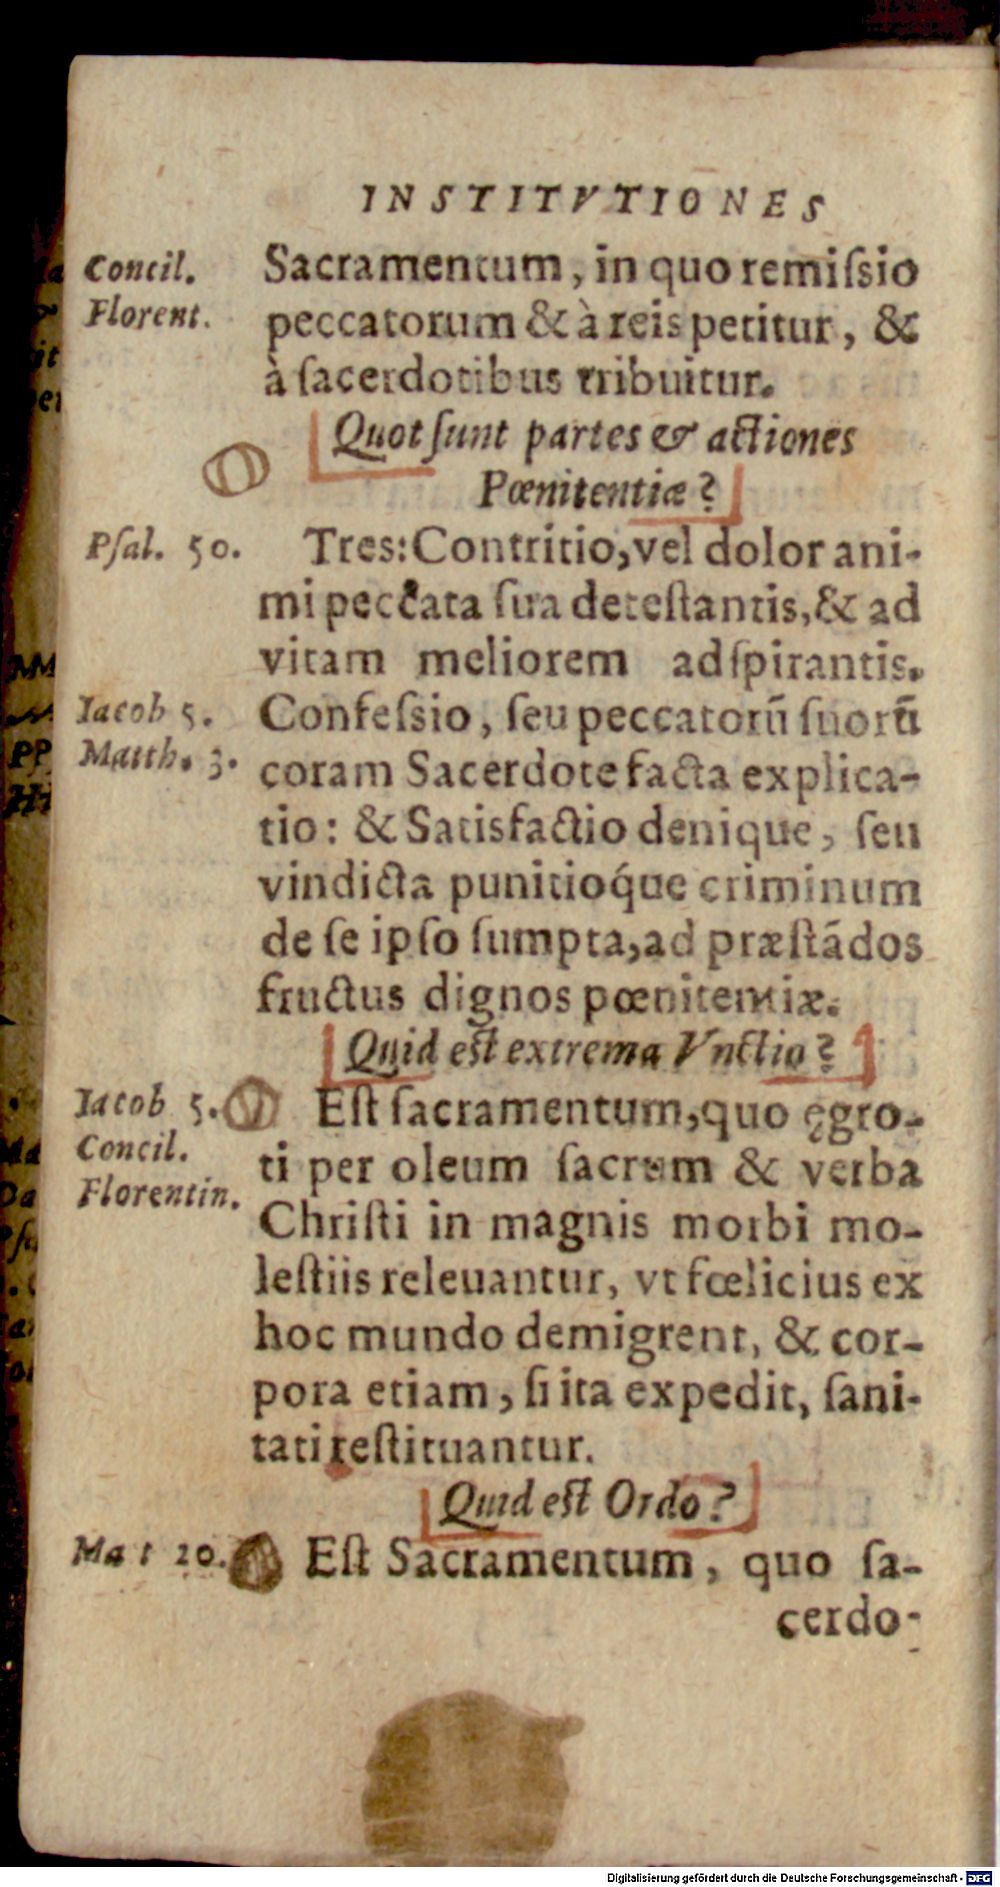 INSTITVTIONES
Concil.
Florent.
Sacramentum, in quo remiſsio
peccatorum & à reis petitur, &
à ſacerdotibus tribuitur.
Quot ſunt partes & actiones
Pœnitentiæ?
Pſal. 50.
Tres: Contritio, vel dolor ani-
mi peccata ſua deteſtantis, & ad
vitam meliorem adſpirantis.
Iacob 5.
Matth. 3.
Confeſsio, ſeu peccatorū ſuorū
coram Sacerdote facta explica-
tio: & Satisfactio denique, ſeu
vindicta punitioq́ue criminum
de ſe ipſo ſumpta, ad præſtādos
fructus dignos pœnitentiæ.
Quid eſt extrema Vnctio?
Iacob 5.
Concil.
Florentin.
Eſt ſacramentum, quo ęgro-
ti per oleum ſacrum & verba
Chriſti in magnis morbi mo-
leſtiis releuantur, vt fœlicius ex
hoc mundo demigrent, & cor-
pora etiam, ſi ita expedit, ſani-
tati reſtituantur.
Quid eſt Ordo?
Mat 20.
Eſt Sacramentum, quo ſa-
cerdo-
Digitalisierung gefördert durch die Deutsche Forschungsgemeinschaft - DFG